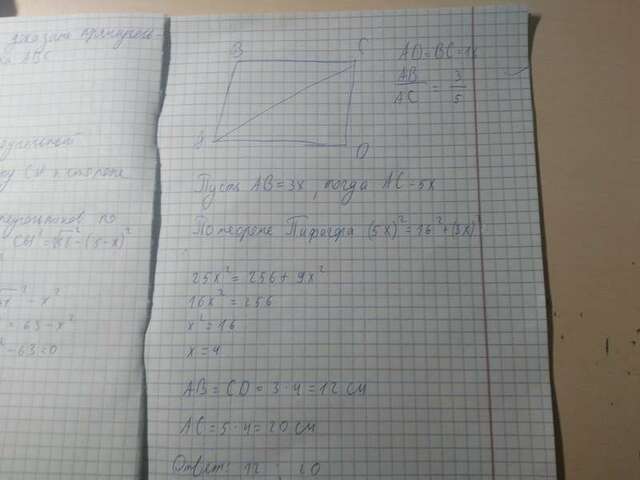 доказать
ABC
CH к стороне
по
= 63 - x²
- 63 = 0
B
C
A
D
AD = BC = 16
AB
AC
=
3
5
Пусть AB = 3x, тогда AC - 5x
По теореме Пифагора (5x)² = 16² + (3x)²
25x² = 256 + 9x²
16x² = 256
x² = 16
x = 4
AB = CD = 3 · 4 = 12 см
AC = 5 · 4 = 20 см
Ответ: 12 ; 20